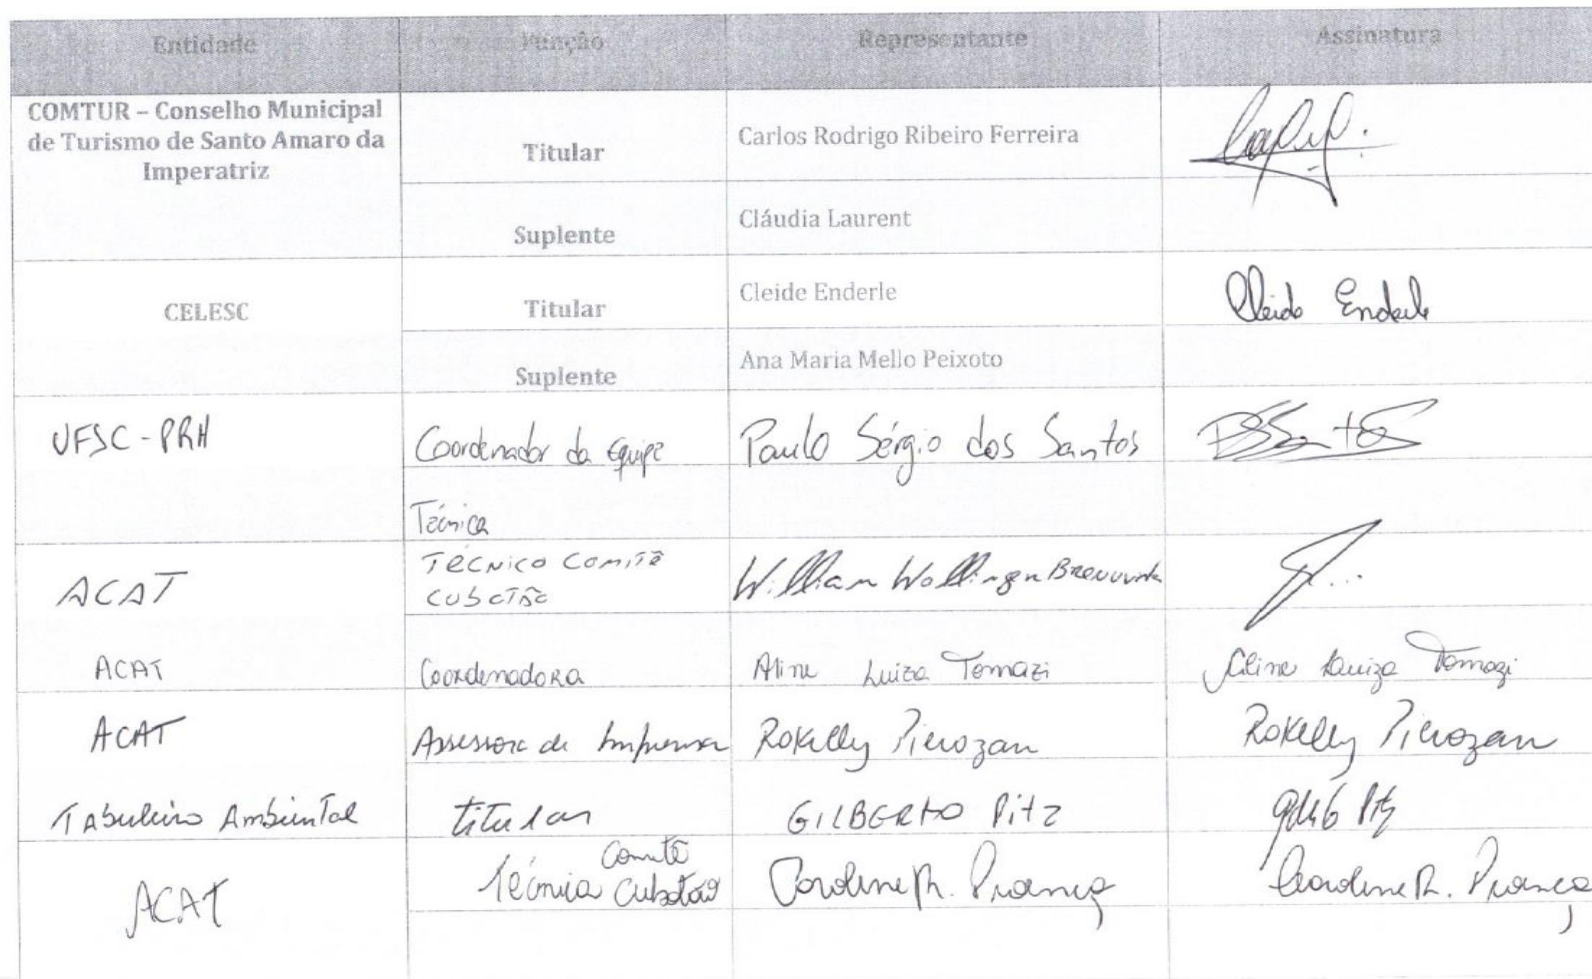 Entidade Função Representante Assinatura
COMTUR – Conselho Municipal
de Turismo de Santo Amaro da
Imperatriz
Titular Carlos Rodrigo Ribeiro Ferreira
Suplente Cláudia Laurent
CELESC Titular Cleide Enderle Cleide Enderle
Suplente Ana Maria Mello Peixoto
UFSC-PRH Coordenador da Equipe Paulo Sérgio dos Santos
Técnica
ACAT TÉCNICO COMITÊ William Wollinger
CUBATÃO
ACAT Coordenadora Aline Luiza Tomazi Aline Luiza Tomazi
ACAT Assessora de Imprensa Rokelly Pierozan Rokelly Pierozan
Tabuleiro Ambiental titular GILBERTO Pitz
Comitê
ACAT Técnica Cubatão Caroline M. Proença Caroline M. Proença